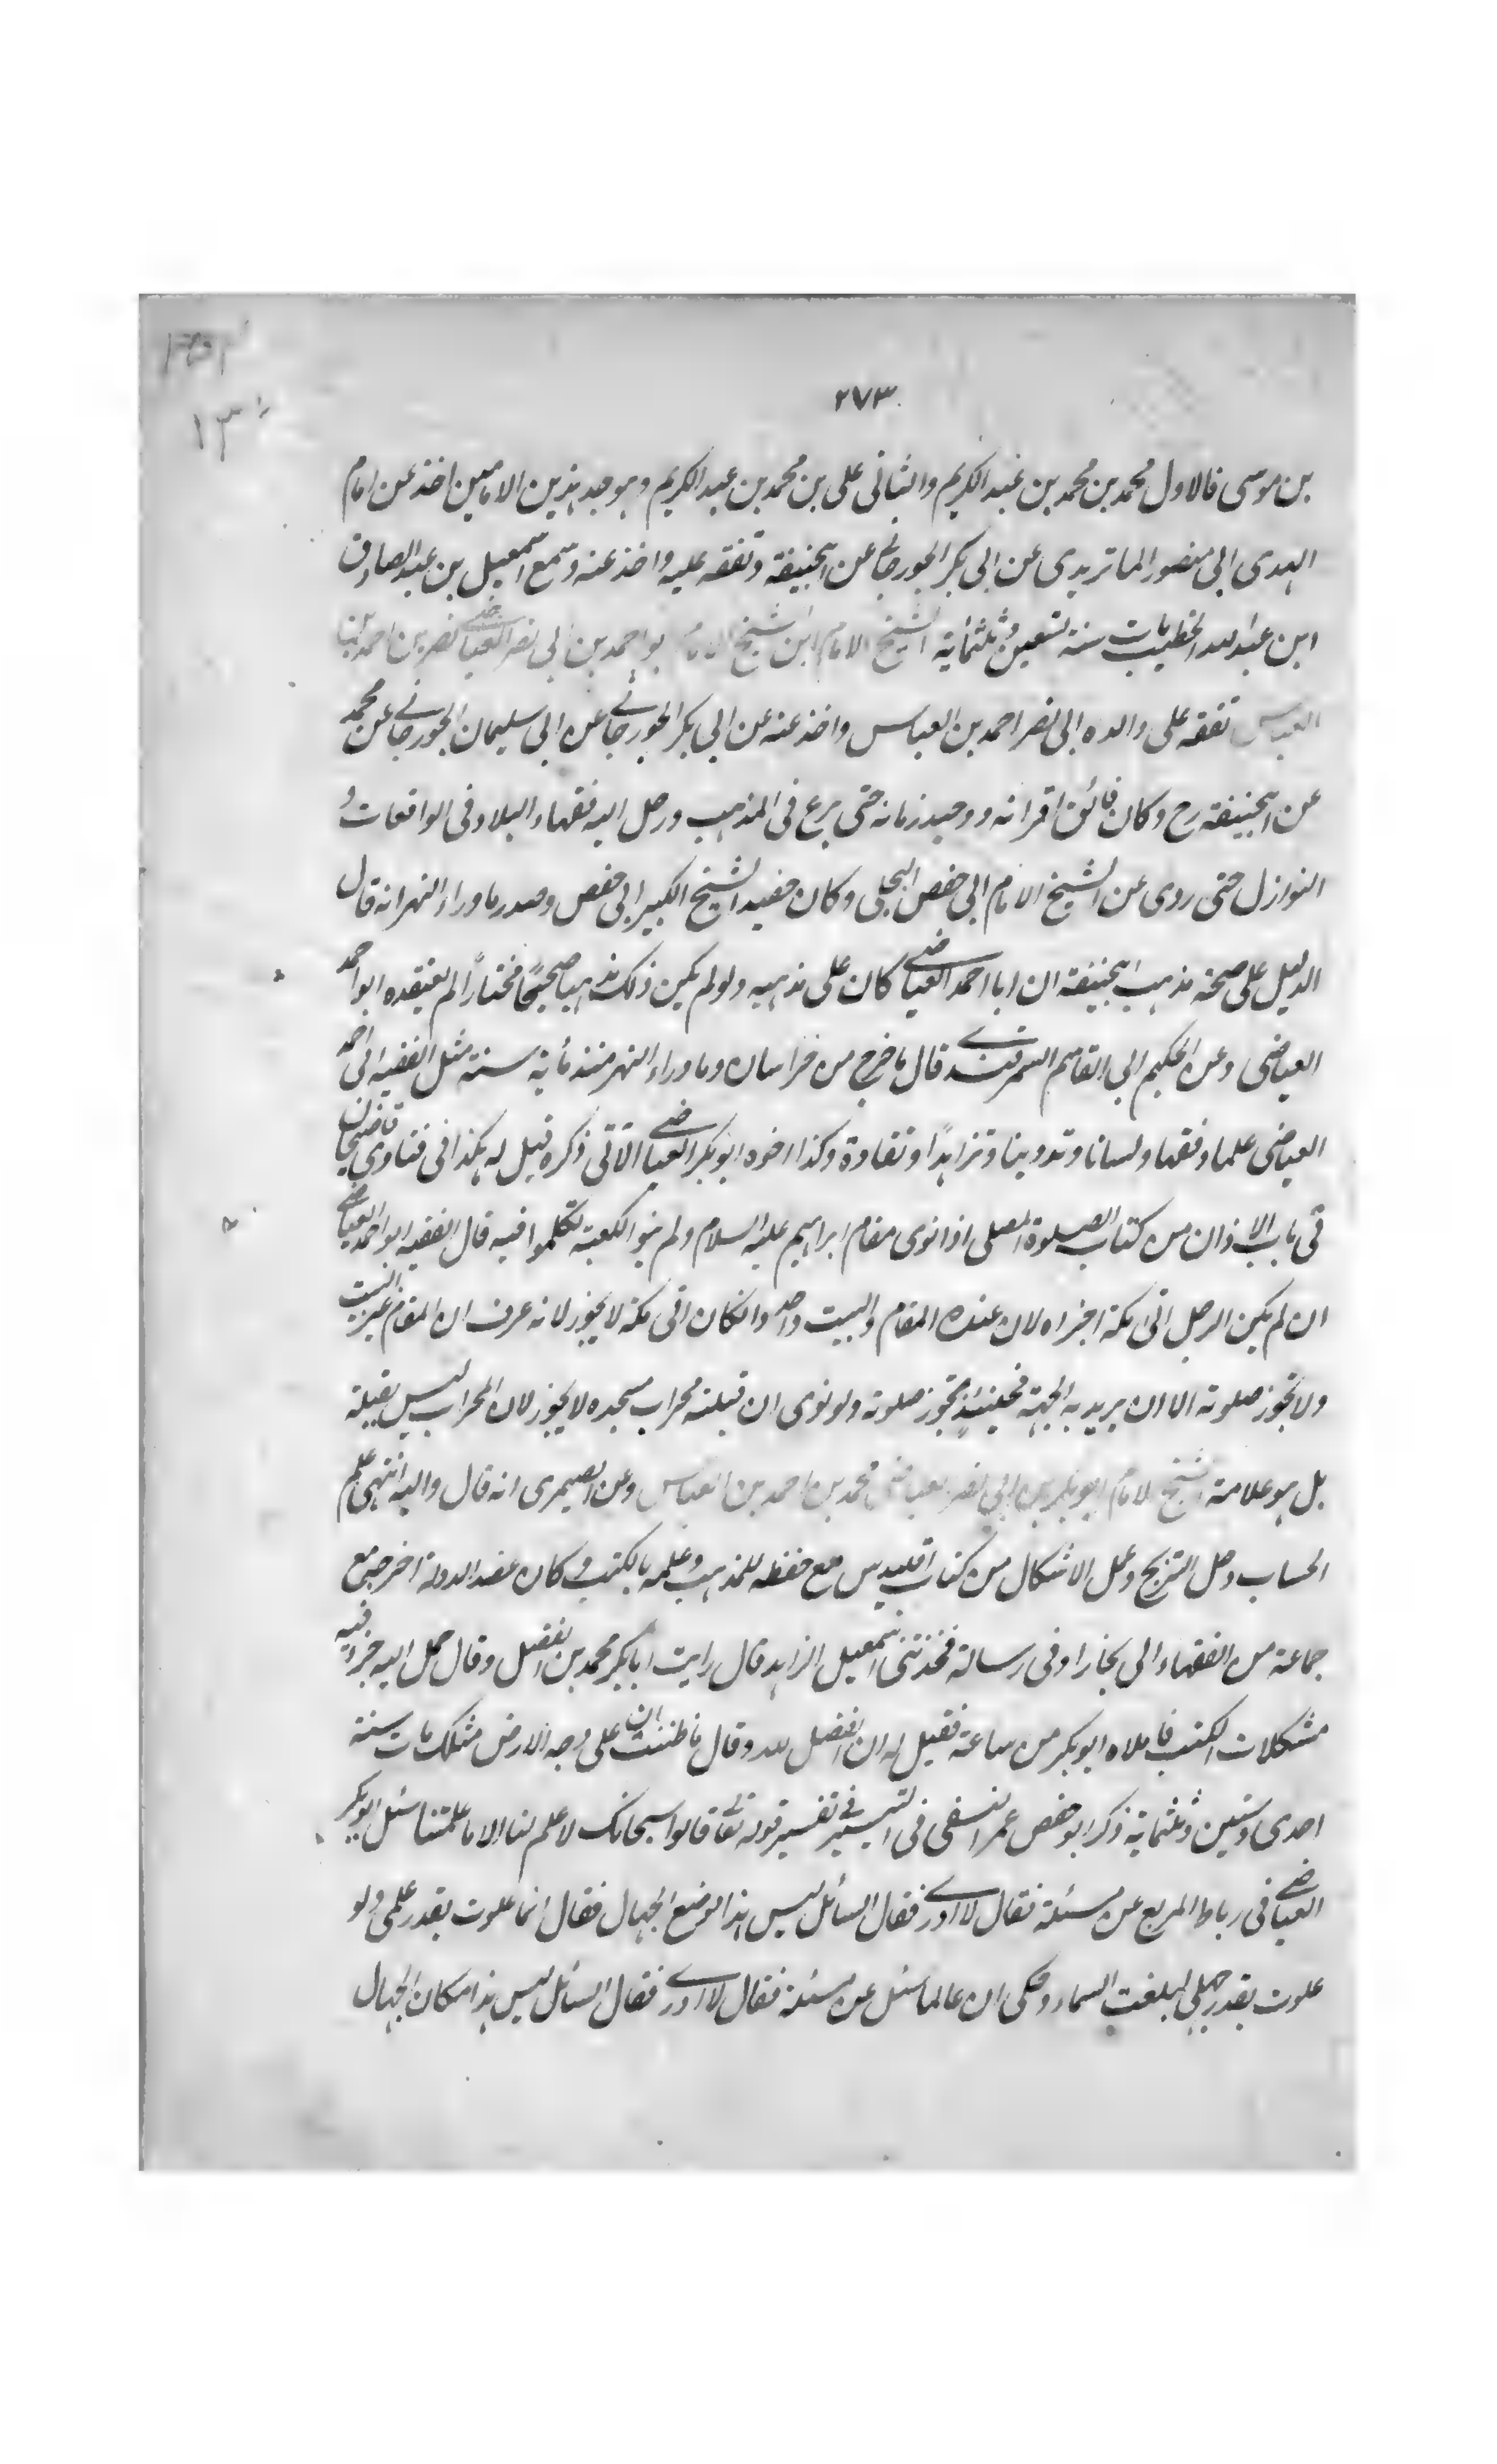 ٢٧٣
بن موسى فالاول محمد بن محمد بن عبد الكريم والثانى على بن محمد بن عبد الكريم وهو جد هذين الامامين اخذ عن امام
الهدى ابى منصور الماتريدى عن ابى بكر الجورجانى عن ابيحنيفة وتفقه عليه واخذ عنه وسمع اسمعيل بن عبد الصادق
ابن عبد الله الخطيب مات سنة تسعين وثلثمائة الشيخ الامام ابن الشيخ الامام ابو احمد بن ابى نصر العياضى نصر بن احمد بن
العباس تفقه على والده ابى نصر احمد بن العباس واخذ عنه عن ابى بكر الجورجانى عن ابى سليمان الجورجانى عن محمد
عن ابيحنيفة رح وكان فائق اقرانه ووحيد زمانه حتى برع فى المذهب ورحل اليه فقهاء البلاد فى الواقعات و
النوازل حتى روى عن الشيخ الامام ابى حفص البجلى وكان حفيد الشيخ الكبير ابى حفص وصدر ما وراء النهر انه قال
الدليل على صحة مذهب ابيحنيفة ان ابا احمد العياضى كان على مذهبه ولو لم يكن ذلك مذهبا صحيحًا مختاراً لم يعتقده ابو احمد
العياضى وعن الحكيم ابى القاسم السمرقندى قال ما خرج من خراسان وما وراء النهر منذ مأية سنة مثل الفقيه ابى احمد
العياضى علما وفقها ولسانا وتدوينا وتزاهدًا وتقادة وكذا اخوه ابو بكر العياضى الآتى ذكره قيل له هكذا فى فتاوى قاضيخان
فى باب الاذان من كتاب الصلوة المصلى اذا نوى مقام ابراهيم عليه السلام ولم ينو الكعبة تكلموا فيه قال الفقيه ابو احمد العياضى
ان لم يكن الرجل اتى مكة اجزاه لان عنده المقام والبيت واحد وانكان اتى مكة لا يجوز لانه عرف ان المقام غير البيت
ولا تجوز صلوته الا ان يريد به الجهة فحينئذٍ تجوز صلوته ولو نوى ان قبلته محراب مسجده لا يجوز لان المحراب ليس بقبلة
بل هو علامة الشيخ الامام ابو بكر بن ابى نصر العياضى محمد بن احمد بن العباس وعن الصيمرى انه قال واليه انتهى علم
الحساب وحل الزيج وعمل الاشكال من كتاب اقليدس مع حفظه للمذهب وعلمه بالكتب وكان عضد الدولة اخرجه مع
جماعة من الفقهاء الى بخارا وفى رسالة فحدثنى اسمعيل الزاهد قال رايت ابا بكر محمد بن الفضل وقال حمل اليه جزء فيه
مشكلات الكتب فاملاه ابو بكر من ساعة فقيل له ان الفضل لله وقال ما ظننت ان على وجه الارض مثلك مات سنة
احدى وستين وثلثمائة ذكر ابو حفص عمر النسفى فى التيسير فى تفسير قوله تعالى قالوا سبحانك لا علم لنا الا ما علمتنا سئل ابو بكر
العياضى فى رباط المربع عن مسئلة فقال لا ادرى فقال السائل ليس هذا موضع الجهال فقال انما علوت بقدر علمى ولو
علوت بقدر جهلى لبلغت السماء وحكى ان عالما سئل عن مسئلة فقال لا ادرى فقال السائل ليس هذا مكان الجهال